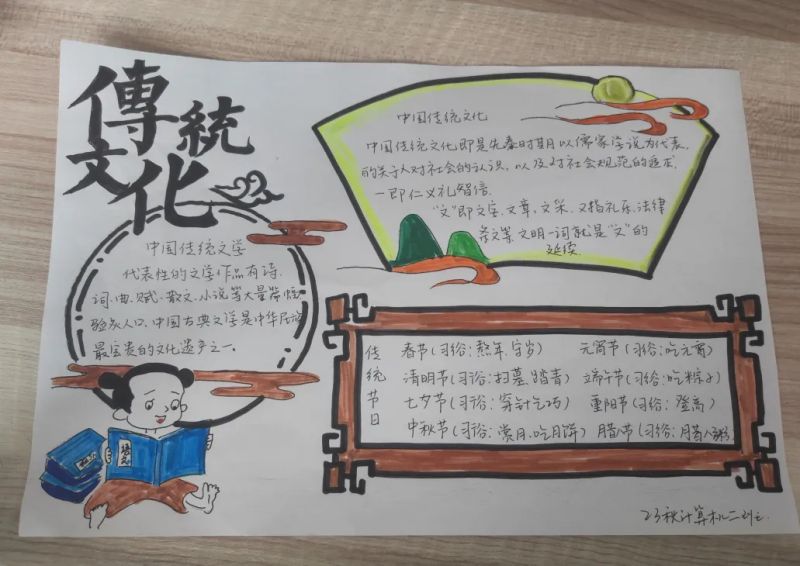 傳統文化
中国传统文学
代表性的文学作品有诗.
词.曲.赋.散文.小说等大量
脍炙人口.中国古典文学是中华民族
最宝贵的文化遗产之一.
中国传统文化
中国传统文化即是先秦时期以儒家学说为代表,
的关于人对社会的认识,以及对社会规范的追求,
一即仁义礼智信.
"文"即文字,文章,文采.又指礼乐,法律
条文等文明一词就是"文"的
延续.
传统节日
春节(习俗:熬年.守岁) 元宵节(习俗:吃元宵)
清明节(习俗:扫墓.踏青) 端午节(习俗:吃粽子)
七夕节(习俗:穿针乞巧) 重阳节(习俗:登高)
中秋节(习俗:赏月.吃月饼) 腊节(习俗:
23秋计算机二班